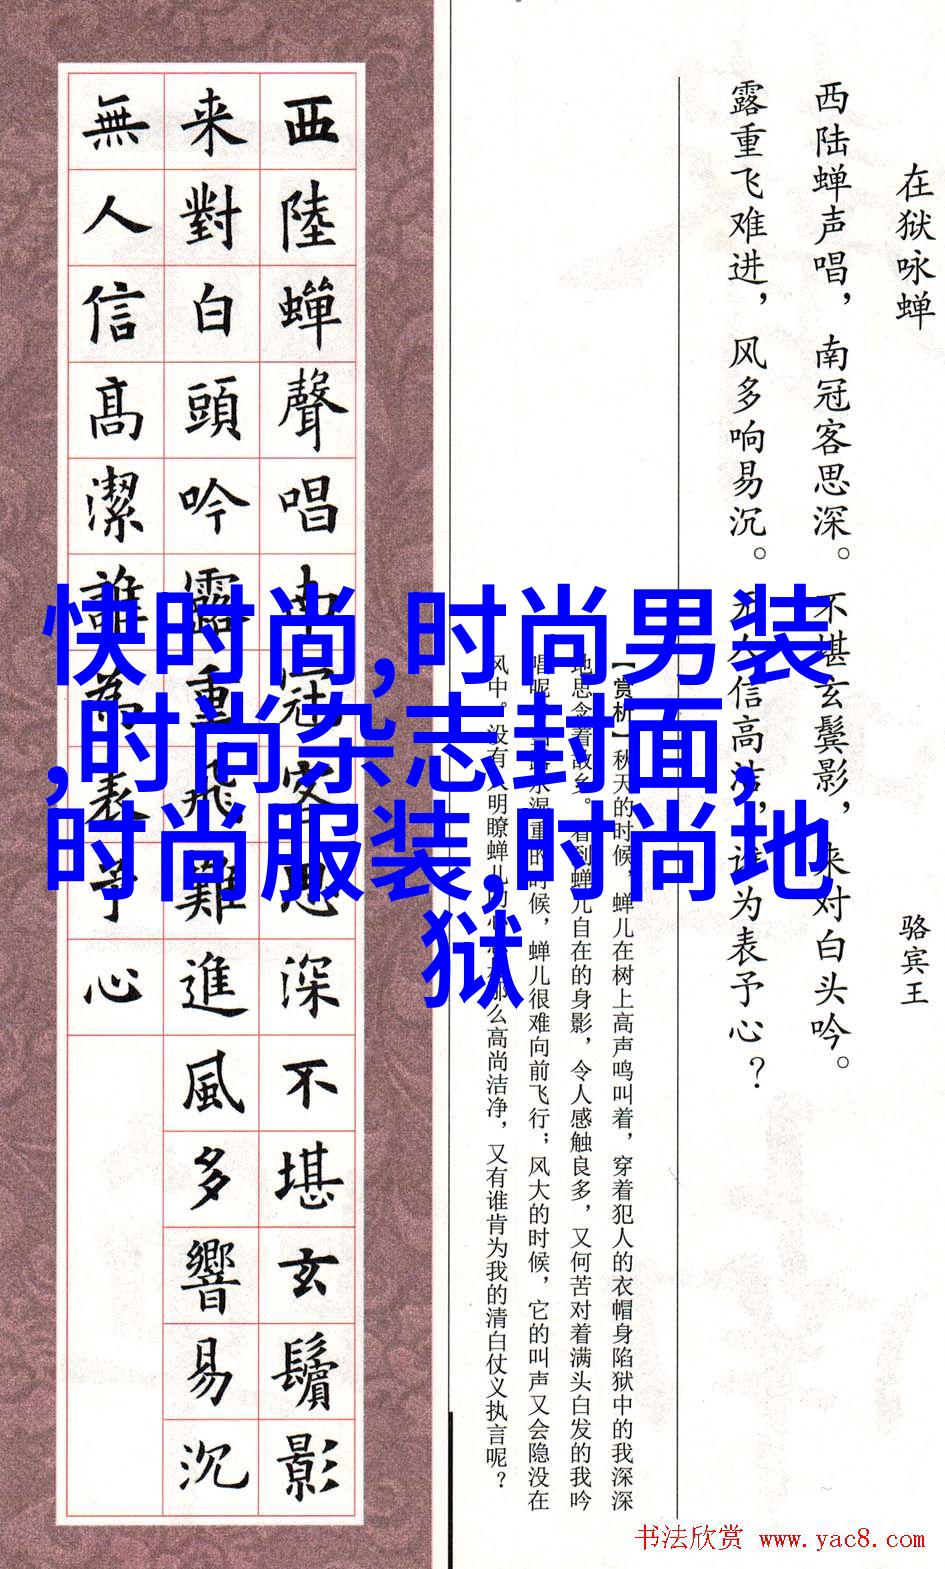 在狱咏蝉
骆宾王
西陆蝉声唱，南冠客思深。不堪玄鬓影，来对白头吟。
露重飞难进，风多响易沉。无人信高洁，谁为表予心？
【赏析】秋天的时候，蝉儿在树上高声鸣叫着，穿着犯人的衣帽身陷狱中的我深深
地思念着故乡。看到蝉儿自在的身影，令人感触良多，又何苦对着满头白发的我吟
唱呢 水湿重的时候，蝉儿很难向前飞行；风大的时候，它的叫声又会隐没在
风中。没有 明瞭蝉儿的心 那么高尚洁净，又有谁肯为我的清白仗义执言呢？
西陸蟬聲唱南冠客思深不堪玄鬢影
来對白頭吟露重飛難進風多響易沉
無人信高潔誰為表予心
快时尚,时尚男装
,时尚杂志封面,
时尚服装,时尚地
狱
书法欣赏 www.yac8.com